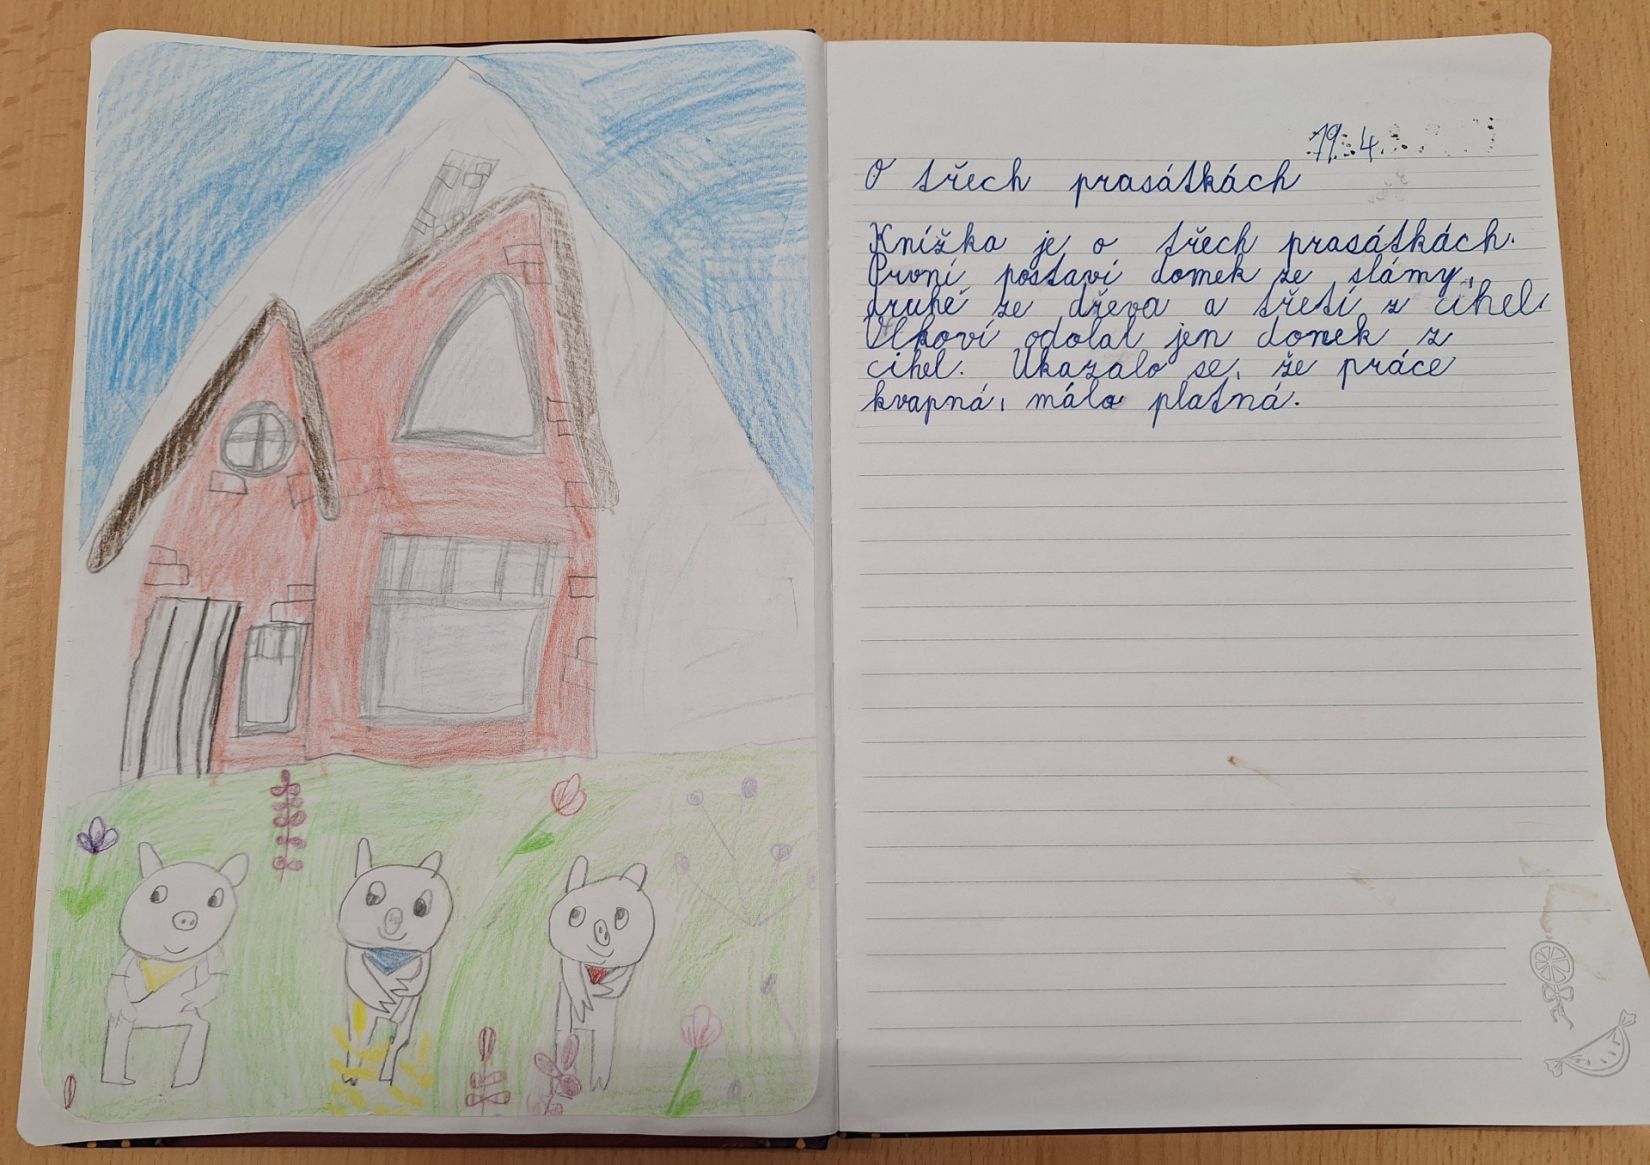 19. 4.
O třech prasátkách
Knížka je o třech prasátkách.
První postaví domek ze slámy,
druhé ze dřeva a třetí z cihel.
Vlkovi odolal jen domek z
cihel. Ukazalo se, že práce
kvapná, málo platná.